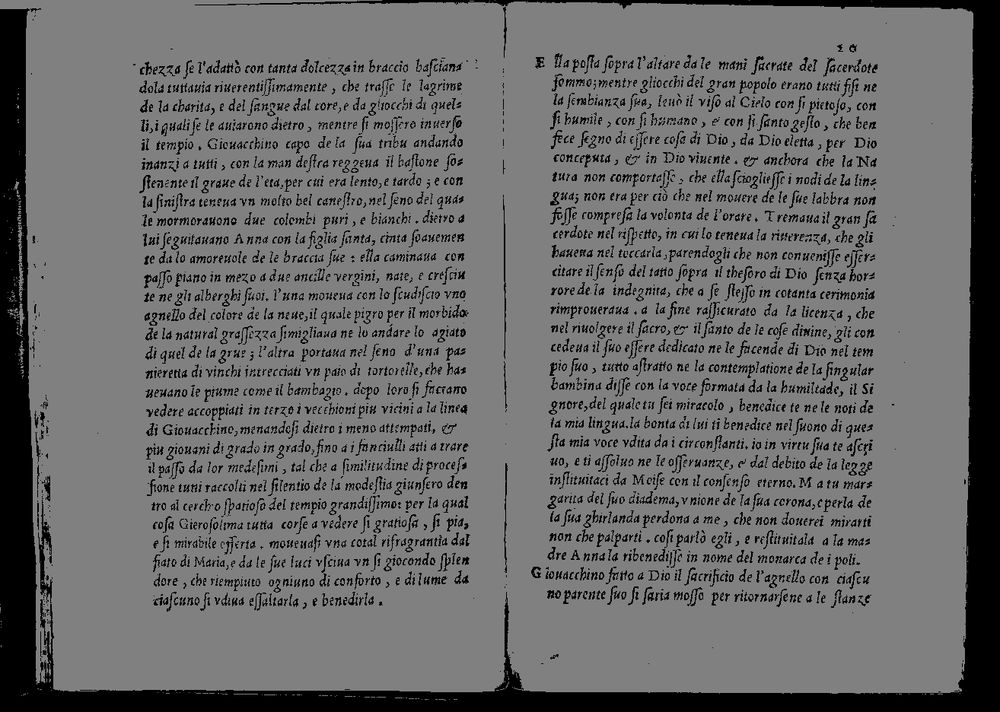 chezza se l'adattò con tanta dolcezza in braccio basciana
dola tuttauia riuerentissimamente, che trasse le lagrime
de la charita, e del sangue dal core, e da gliocchi di quel=
li, i quali se le auiarono dietro, mentre si mossero inuerso
il tempio. Giouacchino capo de la sua tribu andando
inanzi a tutti, con la man destra reggeua il bastone so=
stenente il graue de l'eta, per cui era lento, e tardo; e con
la sinistra teneua vn molto bel canestro, nel seno del qua=
le mormorauono due colombi puri, e bianchi. dietro a
lui seguitauano Anna con la figlia santa, cinta soauemen
te da lo amoreuole de le braccia sue: ella caminaua con
passo piano in mezo a due ancille vergini, nate, e cresciu
te ne gli alberghi suoi. l'una moueua con lo scudiscio vno
agnello del colore de la neue, il quale pigro per il morbido
de la natural grassezza simigliaua ne lo andare lo agiato
di quel de la grue; l'altra portaua nel seno d'una pa=
nieretta di vinchi intrecciati vn paio di tortorelle, che ha=
ueuano le piume come il bambagio. dopo loro si faceano
vedere accoppiati in terzo i vecchioni piu vicini a la linea
di Giouacchino, menandosi dietro i meno attempati, &
piu giouani di grado in grado, fino a i fanciulli atti a trare
il passo da lor medesimi, tal che a similitudine di proces=
sione tutti raccolti nel silentio de la modestia giunsero den
tro al cerchio spatioso del tempio grandissimo: per la qual
cosa Gierosolima tutta corse a vedere si gratiosa, si pia,
e si mirabile offerta. moueuasi vna cotal rifragrantia dal
fiato di Maria, e da le sue luci vsciua vn si giocondo splen
dore, che riempiuto ogniuno di conforto, e di lume da
ciascuno si vdiua essaltarla, e benedirla.
20
Ella posta sopra l'altare da le mani sacrate del sacerdote
sommo; mentre gliocchi del gran popolo erano tutti fisi ne
la sembianza sua, leuò il viso al Cielo con si pietoso, con
si humile, con si humano, & con si santo gesto, che ben
fece segno di essere cosa di Dio, da Dio eletta, per Dio
conceputa, & in Dio viuente. & anchora che la Na
tura non comportasse, che ella sciogliesse i nodi de la lin=
gua; non era per ciò che nel mouere de le sue labbra non
fosse compresa la volonta de l'orare. Tremaua il gran sa
cerdote nel rispetto, in cui lo teneua la riuerenza, che gli
haueua nel toccarla, parendogli che non conuenisse esser=
citare il senso del tatto sopra il thesoro di Dio senza hor=
rore de la indegnita, che a se stesso in cotanta cerimonia
rimproueraua. a la fine rassicurato da la licenza, che
nel riuolgere il sacro, & il santo de le cose diuine, gli con
cedeua il suo essere dedicato ne le facende di Dio nel tem
pio suo, tutto astratto ne la contemplatione de la singular
bambina disse con la voce formata da la humiltade, il Si
gnore, del quale tu sei miracolo, benedice te ne le noti de
la mia lingua. la bonta di lui ti benedice nel suono di que=
sta mia voce vdita da i circonstanti. io in virtu sua te ascri
uo, e ti assoluo ne le osseruanze, e dal debito de la legge
instituitaci da Moise con il consenso eterno. Ma tu mar=
garita del suo diadema, vnione de la sua corona, e perla de
la sua ghirlanda perdona a me, che non douerei mirarti
non che palparti. cosi parlò egli, e restituitala a la ma=
dre Anna la ribenedisse in nome del monarca de i poli.
Giouacchino fatto a Dio il sacrificio de l'agnello con ciascu
no parente suo si saria mosso per ritornarsene a le stanze